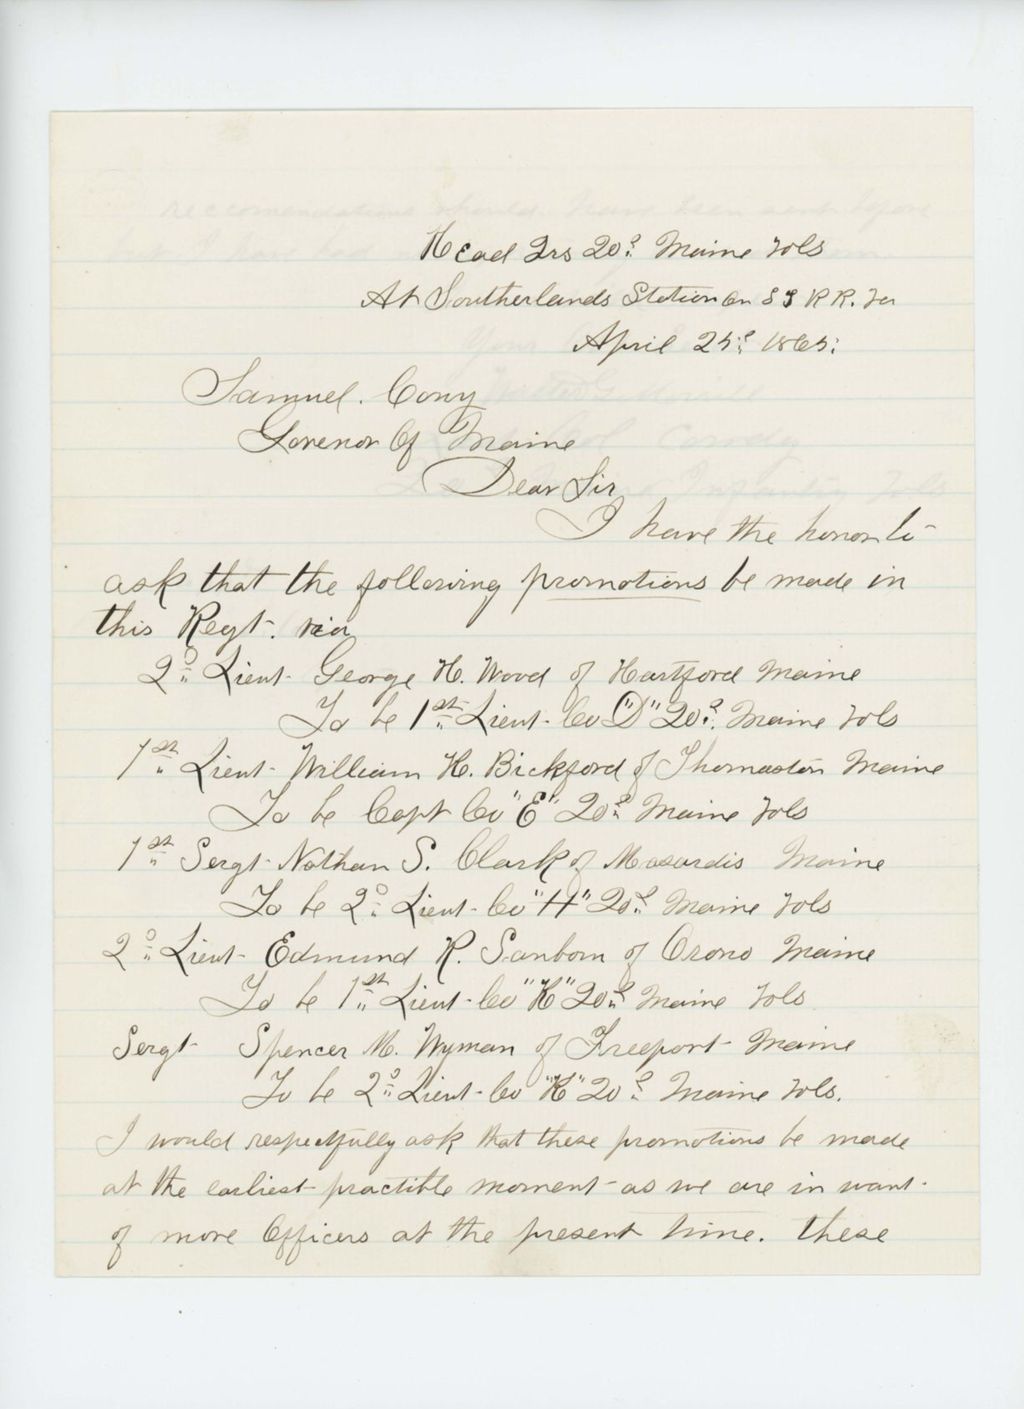 Head Qrs 20th Maine Vols
At Southerlands Station on S S R R. Va
April 25th 1865.
Samuel. Cony
Govenor Of Maine
Dear Sir
I have the honor to
ask that the following promotions be made in
this Regt. via
2d Lieut. George H. Wood of Hartford Maine
To be 1st Lieut. Co "D" 20th Maine Vols
1st Lieut. William K. Bickford of Thomaston Maine
To be Capt Co "E" 20th Maine Vols
1st Sergt. Nathan S. Clark of Masardis Maine
To be 2d Lieut. Co "H" 20th Maine Vols
2d Lieut. Edmund R. Sanborn of Orono Maine
To be 1st Lieut. Co "K" 20th Maine Vols
Sergt Spencer M. Wyman of Freeport Maine
To be 2d Lieut. Co "K" 20th Maine Vols.
I would respectfully ask that these promotions be made
at the earliest practible moment as we are in want
of more Officers at the present time. these